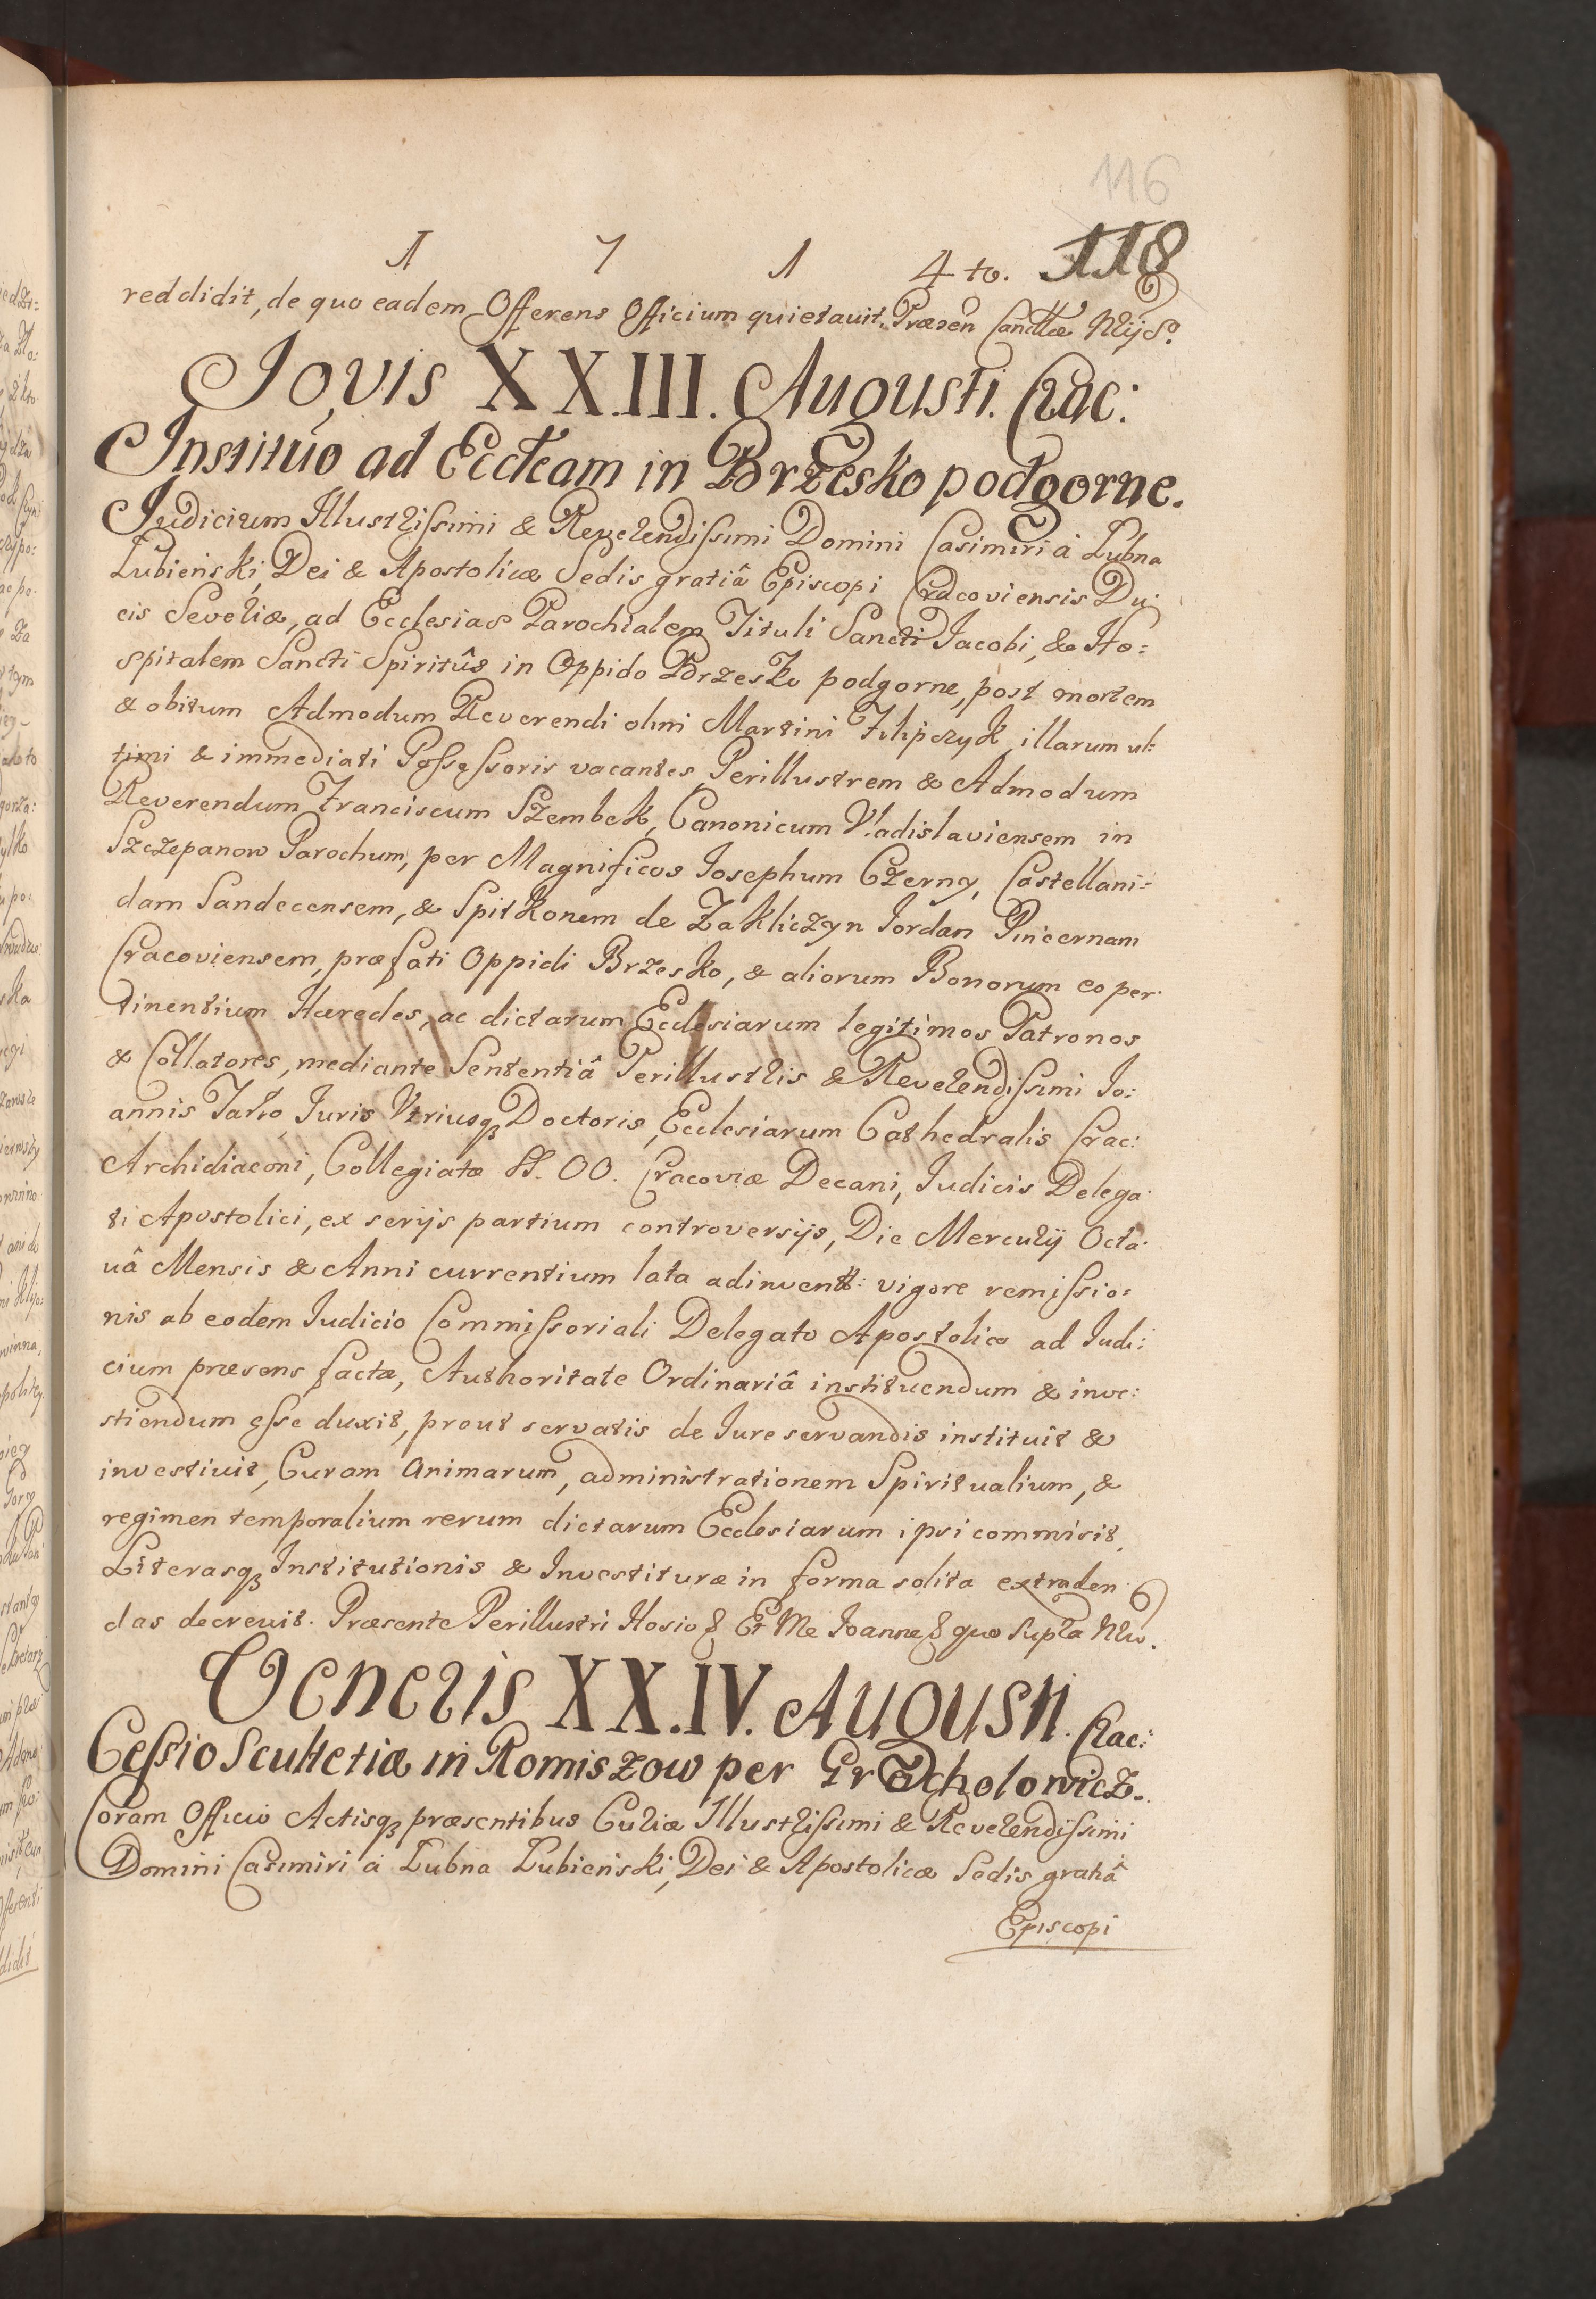 116
1 7 1 4to. 118
reddidit, de quo eadem Offerens Officium quietauit. Præsen
Jovis XXIII. Augusti. Crac:
Institũo ad Eccleam in Brzesko podgorne.
Judicium Illustrissimi & Reverendissimi Domini Casimiri á Lubna
Lubieński, Dei & Apostolicæ Sedis gratiâ Episcopi Cracoviensis Du:
cis Severiæ, ad Ecclesias Parochialem Tituli Sancti Jacobi, & Ho:
spitalem Sancti Spiritûs in Oppido Brzesko podgorne, post mortem
& obitum Admodum Reverendi olim Martini Filipczyk, illarum ul:
timi & immediati Possessoris vacantes, Perillustrem & Admodum
Reverendum Franciscum Szembek, Canonicum Vladislaviensem in
Szczepanow Parochum, per Magnificos Josephum Czerny, Castellani:
dam Sandecensem, & Spitkonem de Zakliczyn Jordan Pincernam
Cracoviensem, præfati Oppidi Brzesko, & aliorum Bonorum eo per:
tinentium Hæredes, ac dictarum Ecclesiarum legitimos Patronos
& Collatores, mediante Sententiâ Perillustris & Reverendissimi Jo:
annis Tarło, Juris Vtriusq3 Doctoris, Ecclesiarum Cathedralis Crac:
Archidiaconi, Collegiatæ SS. OO. Cracoviæ Decani, Judicis Delega:
ti Apostolici, ex serijs partium controversijs, Die Mercurij Octa:
uâ Mensis & Anni currentium lata adinvent: vigore remissio:
nis ab eodem Judicio Commissoriali Delegato Apostolico ad Judi:
cium præsens factæ, Authoritate Ordinariâ instituendum & inve:
stiendum esse duxit, prout servatis de Jure servandis instituit &
investiuit, Curam Animarum, administrationem Spiritualium, &
regimen temporalium rerum dictarum Ecclesiarum ipsi commisit,
Literasq3 Institutionis & Investituræ in forma solita extraden:
das decreuit. Præsente Perillustri Hosio & Et Me Joanne & quo supra
Veneris XX.IV. Augusti. Crac:
Cessio Scultetiæ in Romiszow per Grocholowicz.
Coram Officio Actisq3 præsentibus Curiæ Illustrissimi & Reverendissimi
Domini Casimiri á Lubna Lubieński, Dei & Apostolicæ Sedis gratiâ
Episcopi